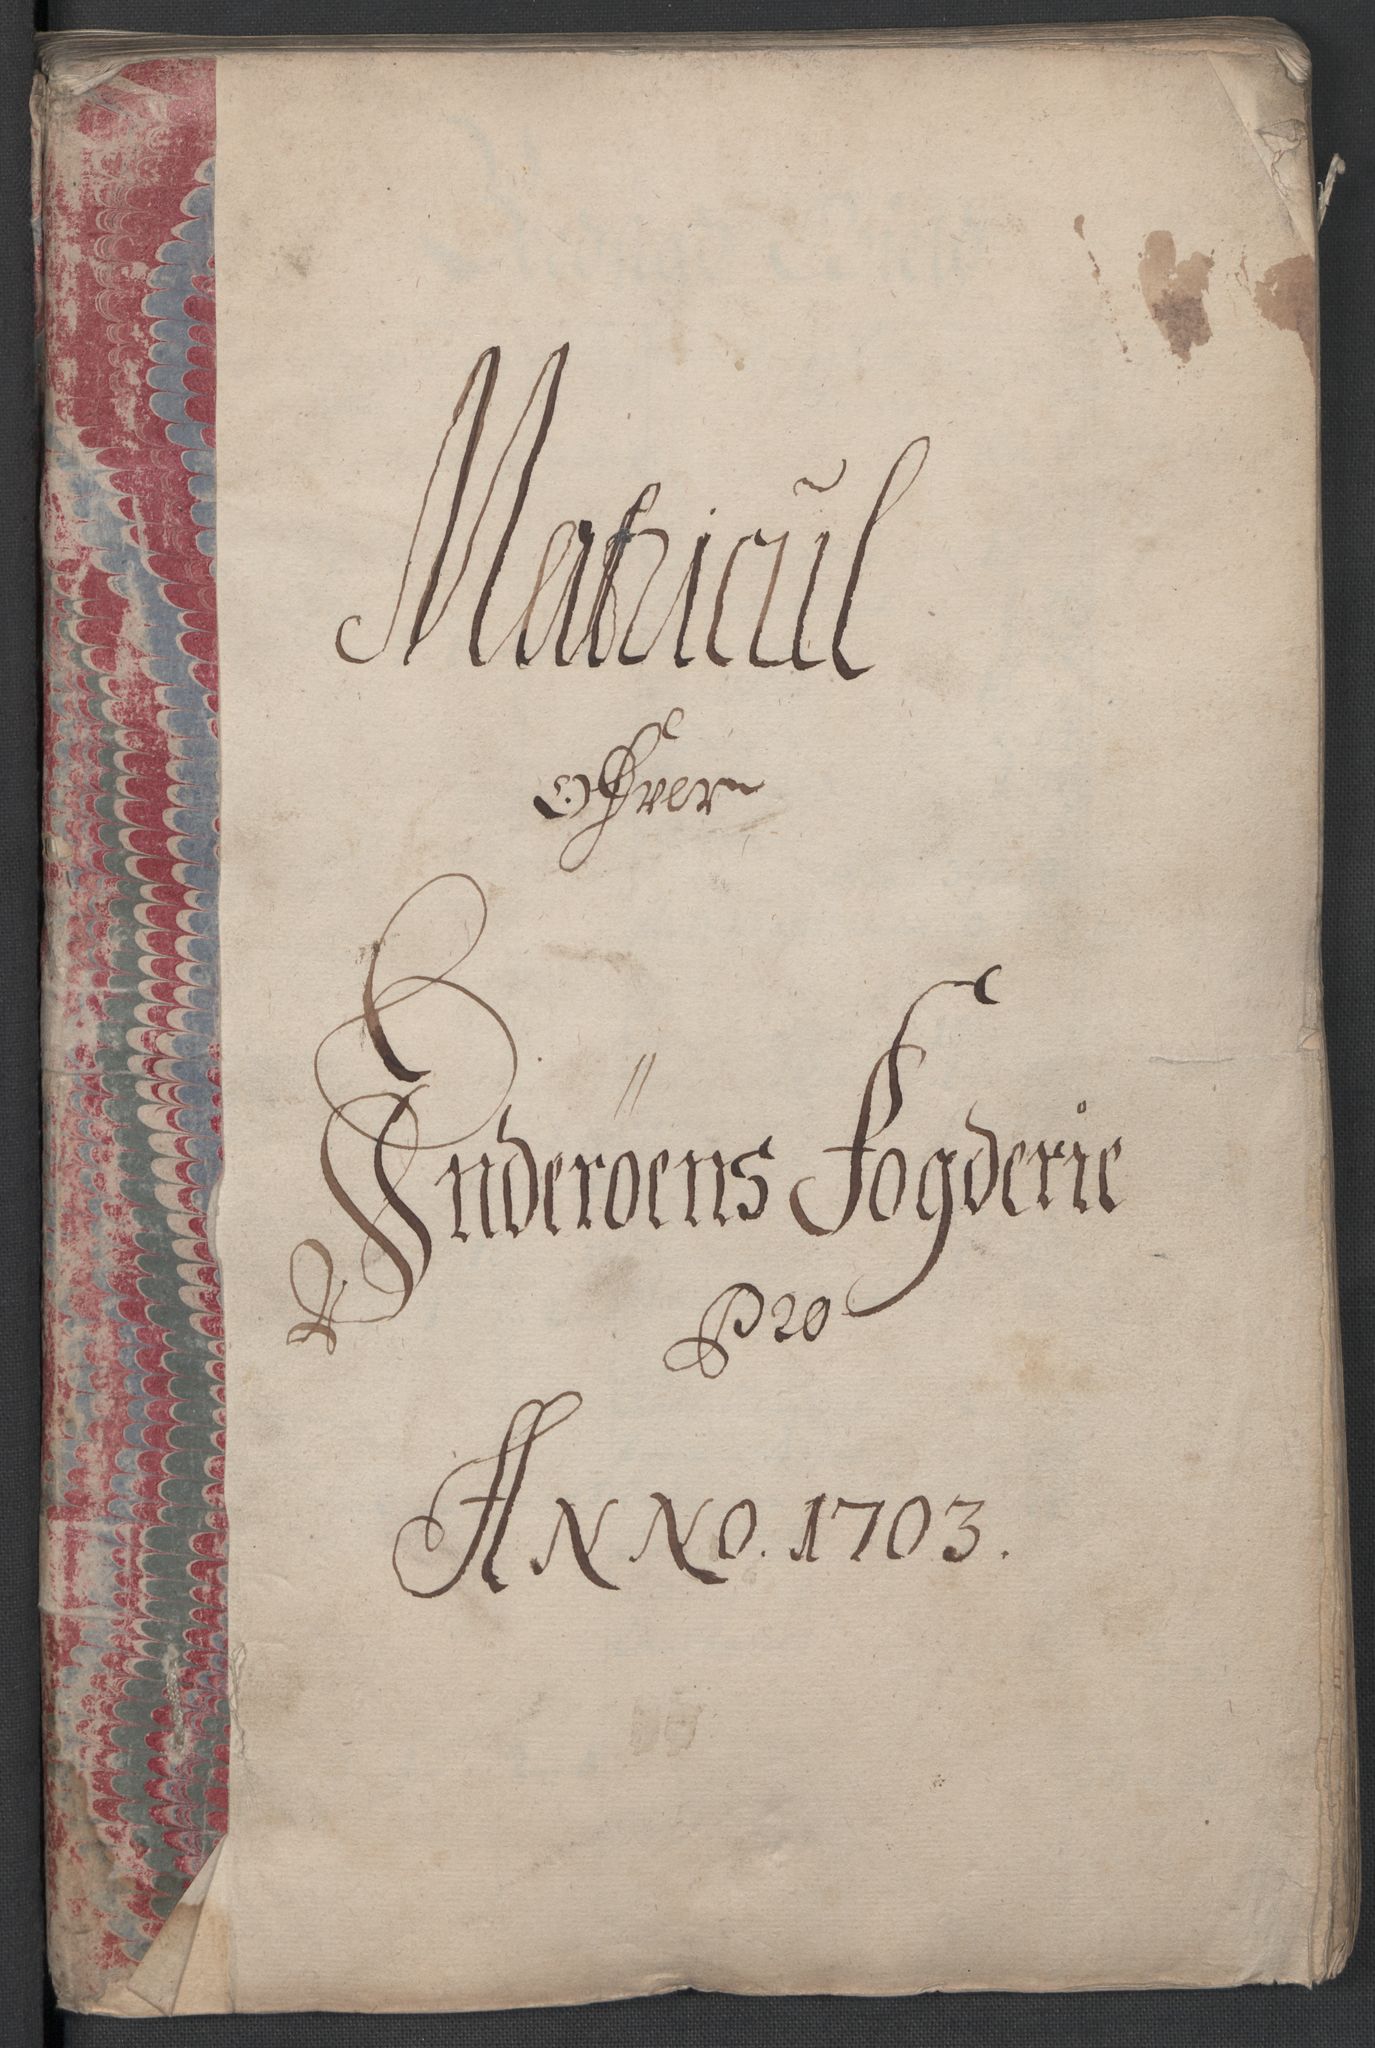 Matricul
ofver
Inderöens Fogderie
pro
ANNO. 1703.